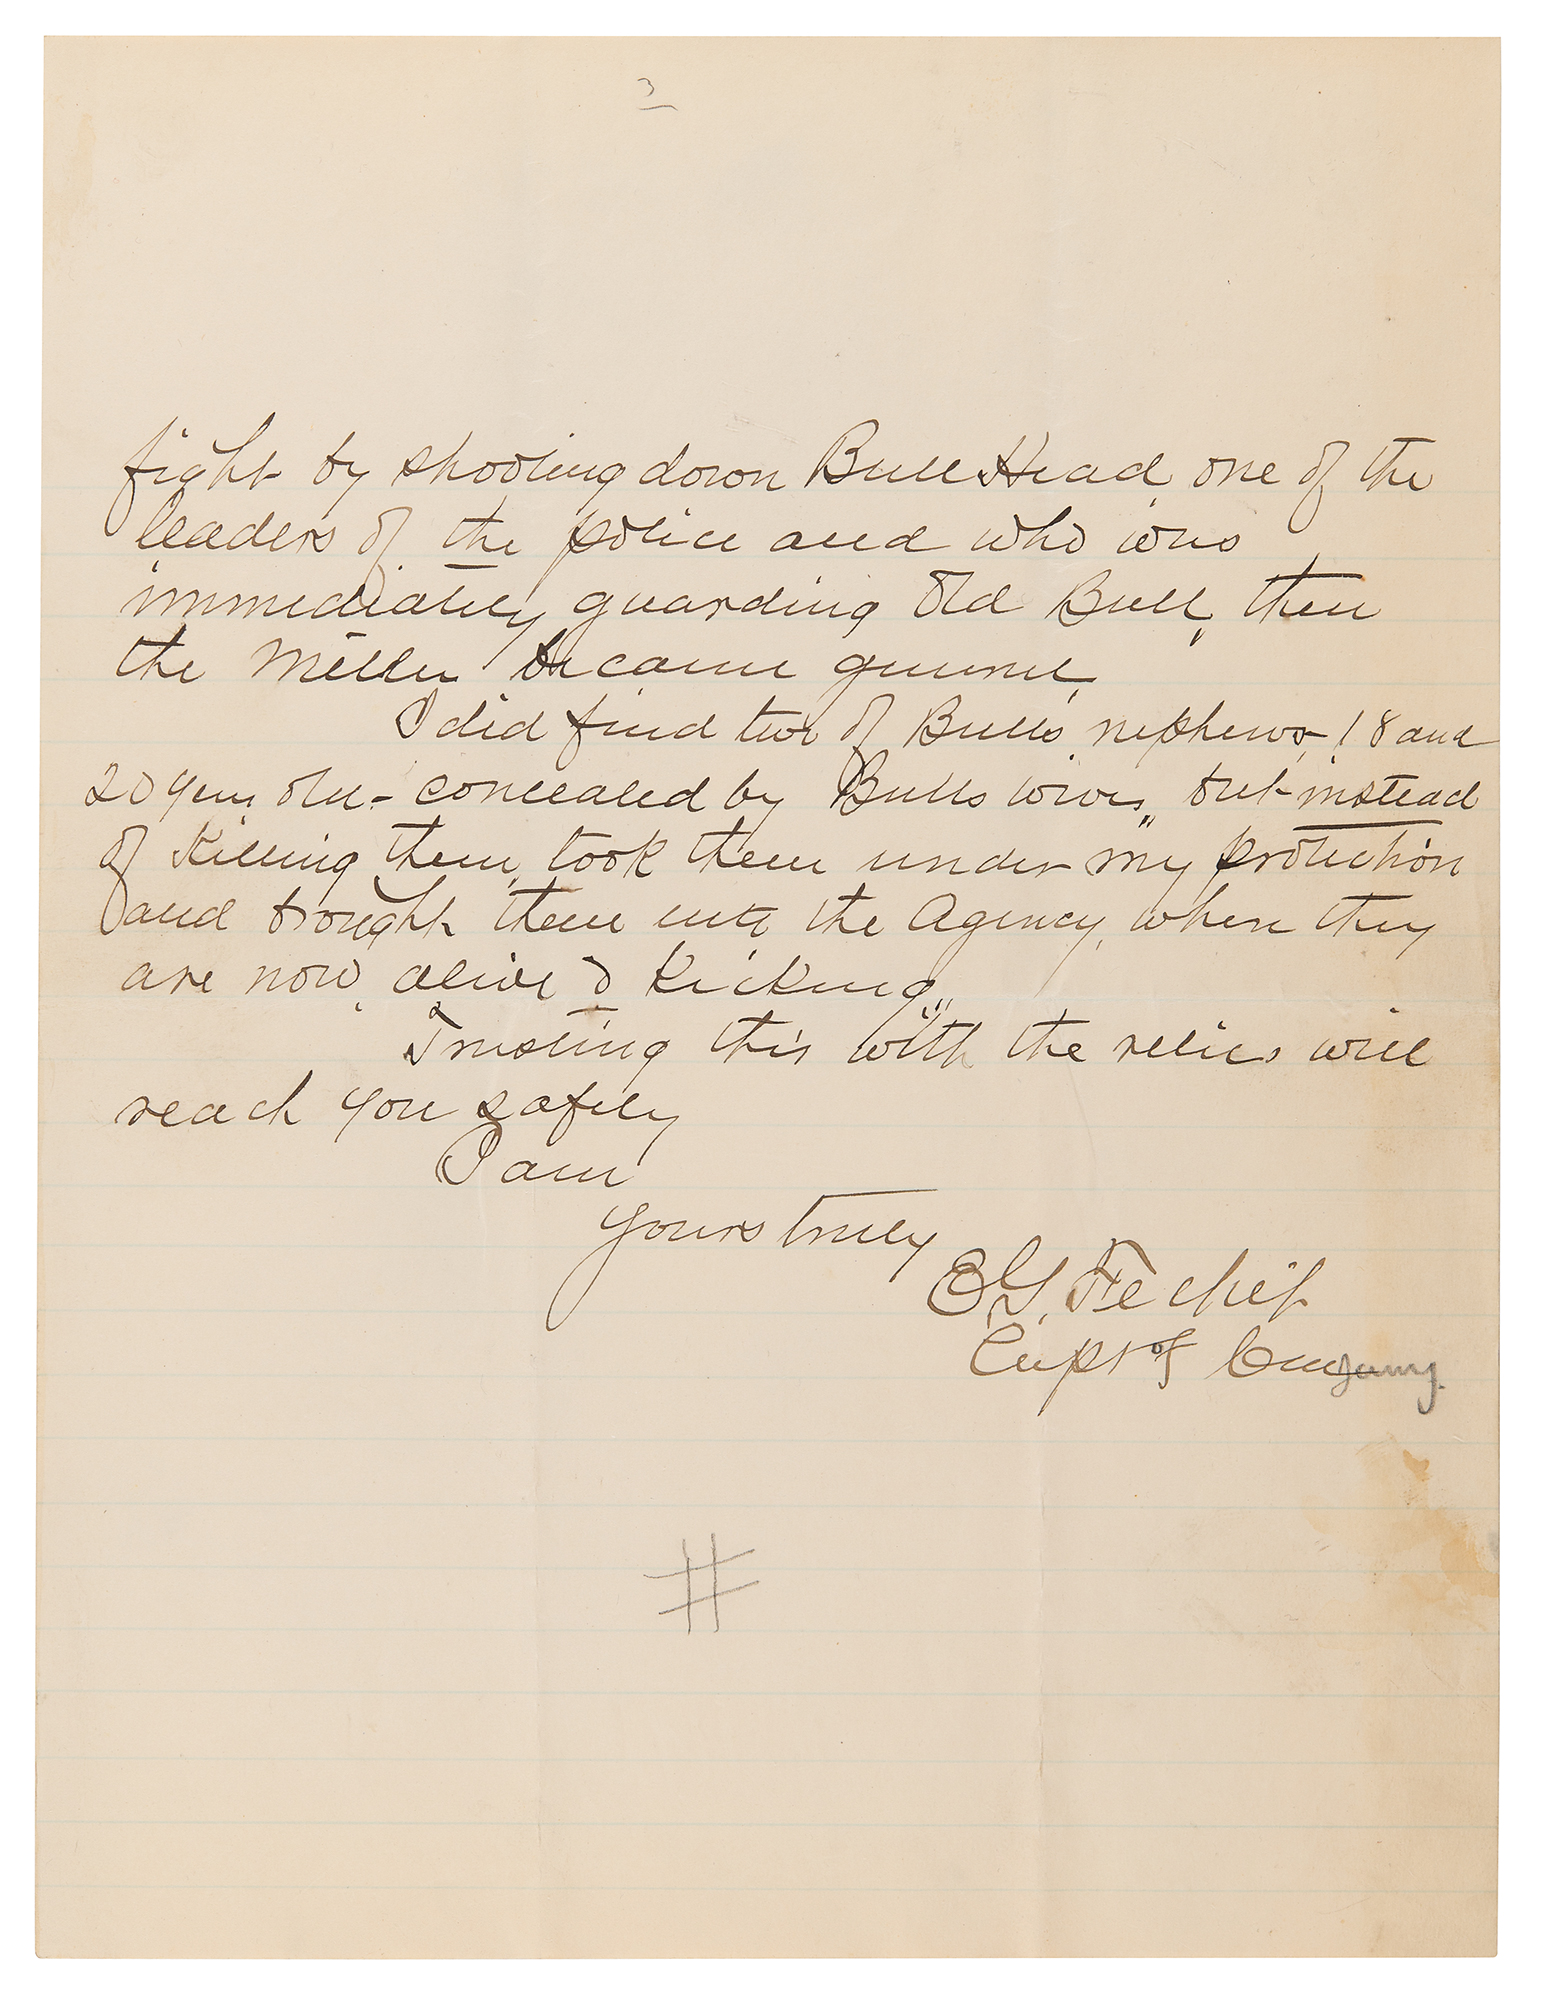 3
fight by shooting down Bull Head, one of the
leaders of the police and who was
immediately guarding Old Bull, then
the Mêlée became general.
I did find two of Bull's nephews, 18 and
20 years old - concealed by Bulls wives, but instead
of killing them, took them under my protection
and brought them into the Agency, where they
are now, alive & kicking.
Trusting this with the relics will
reach you safely
I am
Yours truly
E. G. Fechét
Capt of Cavy
#